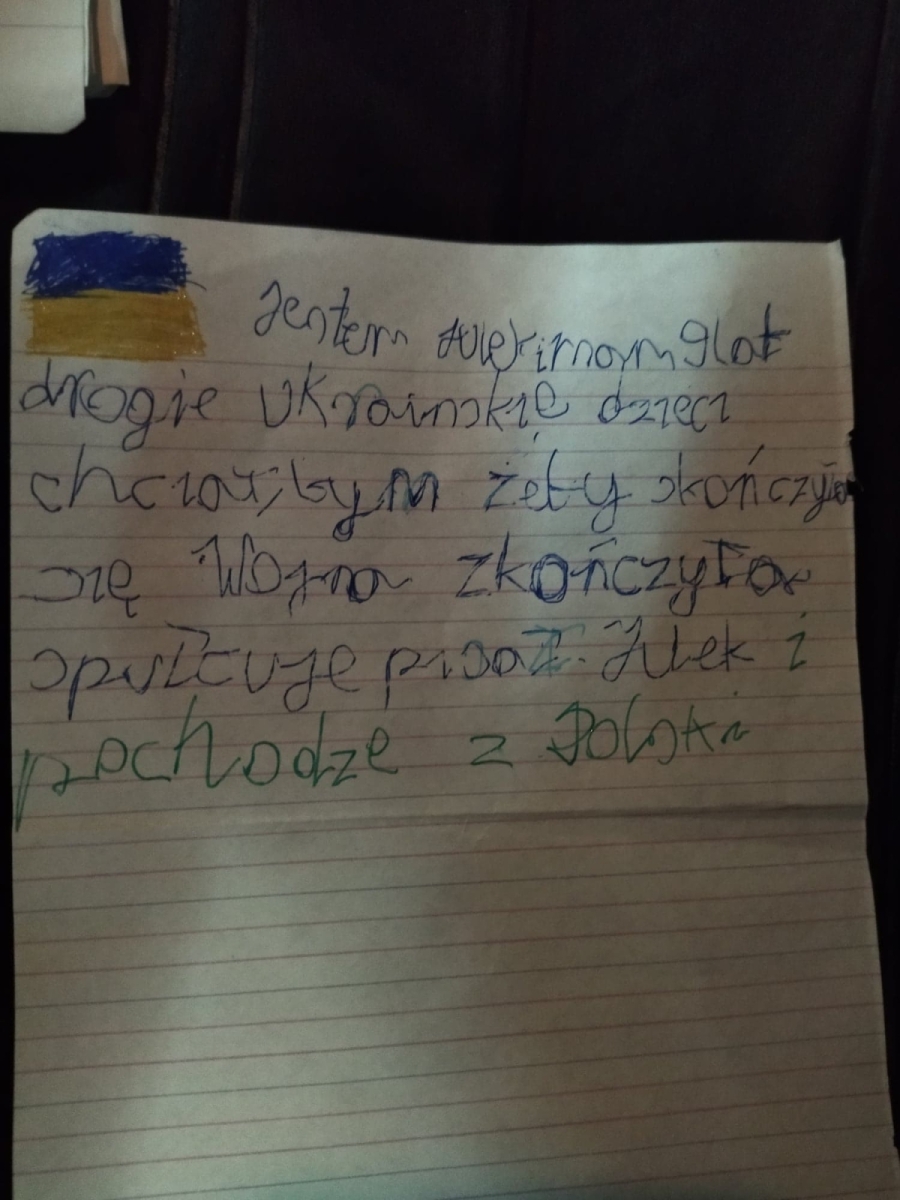 Jestem Julek i mam 9 lat
drogie Ukrainskie dzieci
chciał bym żeby skończyła
się Wojna zkończyła
spułczuje pisał. Julek i
pochodze z Polski